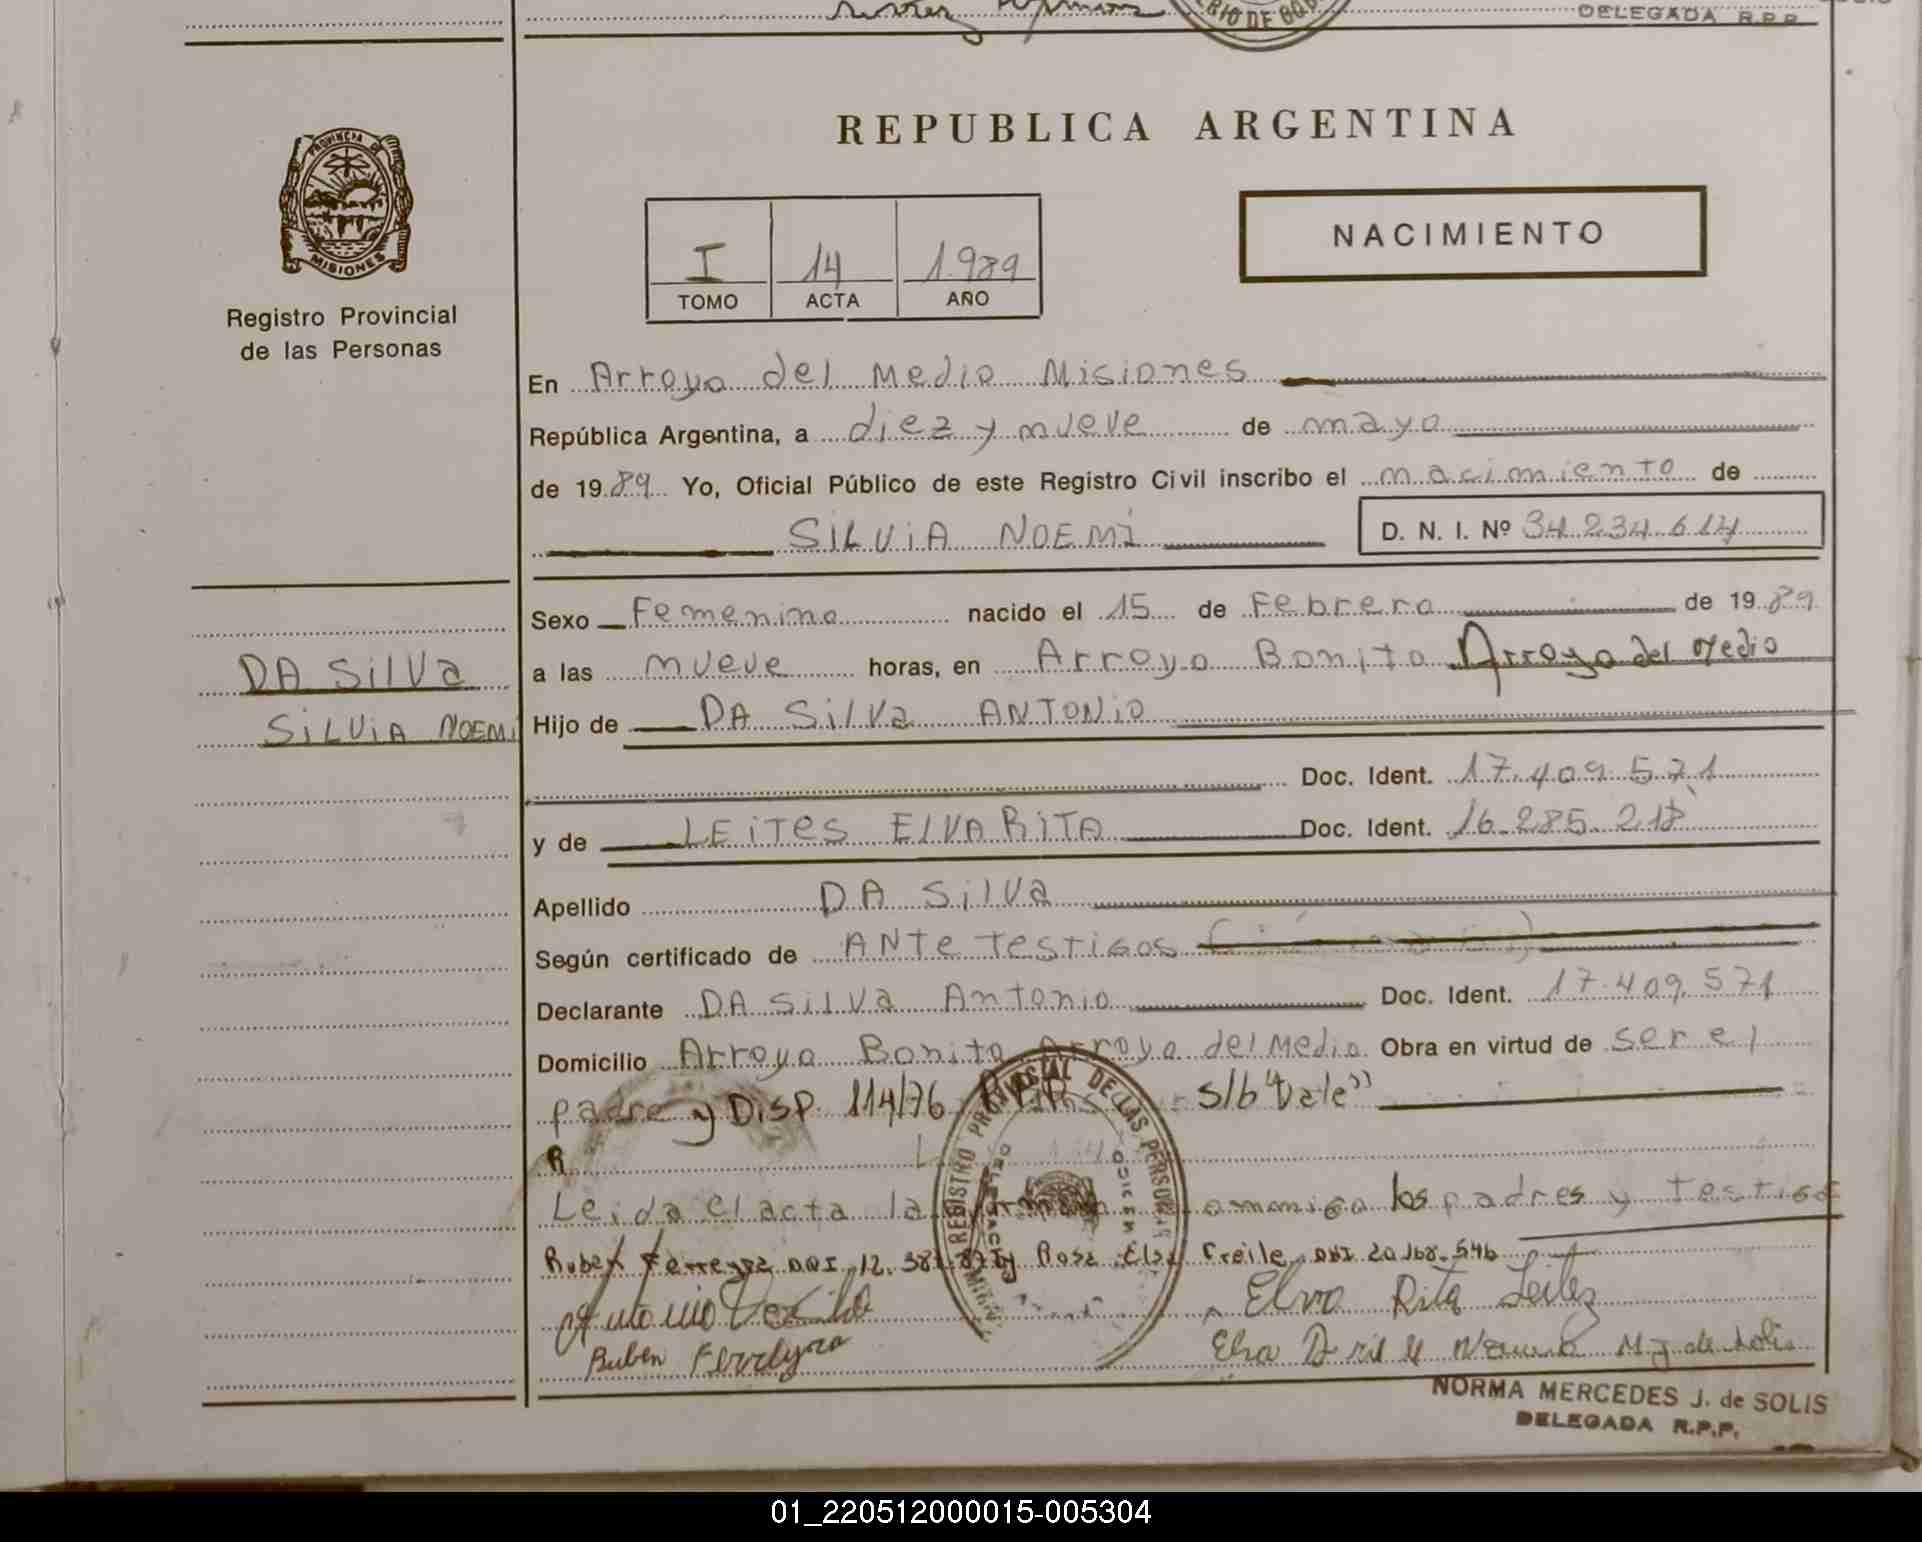 DELEGADA R.P.P.
REPUBLICA ARGENTINA
PROVINCIA DE
MISIONES
Registro Provincial
de las Personas
I 14 1.989
TOMO ACTA AÑO
NACIMIENTO
En Arroyo del Medio Misiones
República Argentina, a diez y nueve de mayo
de 1989 Yo, Oficial Público de este Registro Civil inscribo el nacimiento de
SILVIA NOEMI D. N. I. Nº 34.234.614
Sexo Femenino nacido el 15 de Febrero de 1989
a las nueve horas, en Arroyo Bonito Arroyo del Medio
DA SilVa
SILVIA NOEMI
Hijo de DA SilVa ANTONIO
Doc. Ident. 17.409.571
y de LEITES ELVA RITA Doc. Ident. 16.285.218
Apellido DA SilVa
Según certificado de ANTE TESTIGOS
Declarante DA SILVA Antonio Doc. Ident. 17.409.571
Domicilio Arroyo Bonito Arroyo del Medio Obra en virtud de ser el
padre y DISP. 114/76 R.P.P. S/b "Vale"
REGISTRO PROVINCIAL DE LAS PERSONAS
Leida el acta la firman conmigo los padres y testigos
Ruben Ferreyra DNI 12. y Rosa Elsa DNI 20.168.546
Antonio Da Silva Elva Rita Leites
Ruben Ferreyra Norma M J de Solis
NORMA MERCEDES J. de SOLIS
DELEGADA R.P.P.
01_220512000015-005304